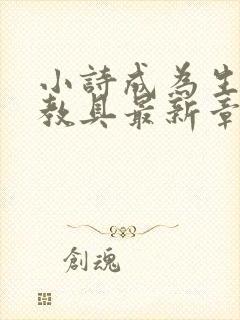 小詩成為生
教具最新章
創魂